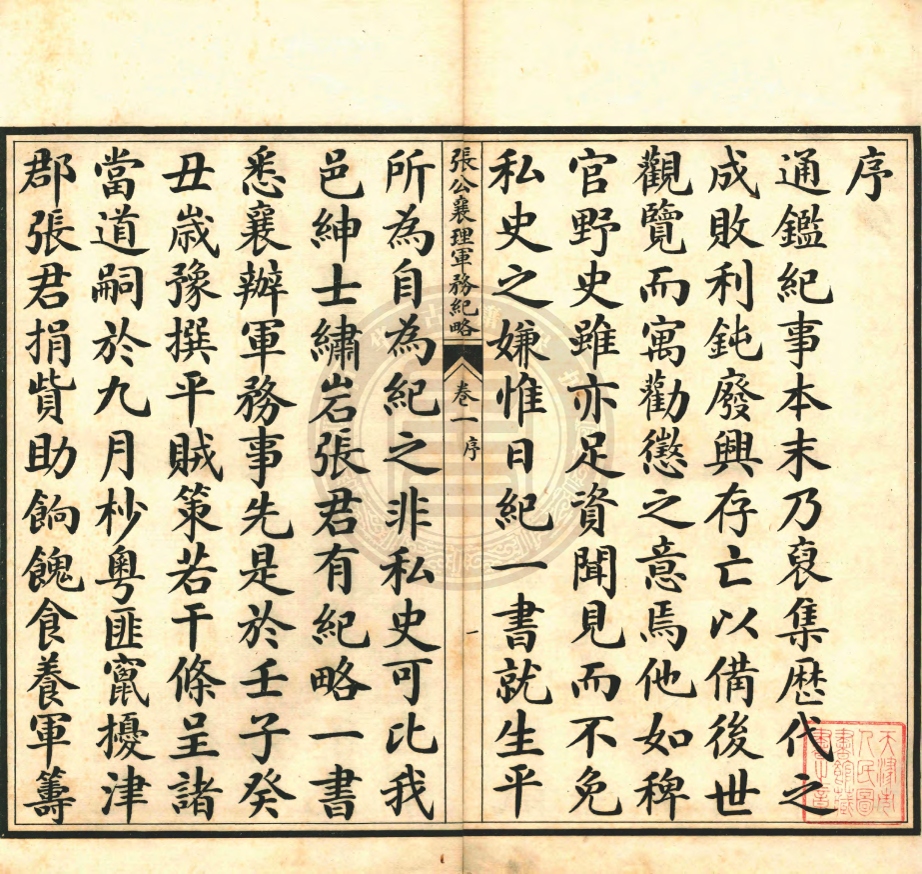 序
通鑑紀事本末乃裒集歷代之
成敗利鈍廢興存亡以備後世
觀覽而寓勸懲之意焉他如稗
官野史雖亦足資聞見而不免
私史之嫌惟日紀一書就生平
張公襄理軍務紀略
卷一 序
一
所為自為紀之非私史可比我
邑紳士繡岩張君有紀略一書
悉襄辦軍務事先是於壬子癸
丑歲豫撰平賊策若干條呈諸
當道嗣於九月杪粵匪竄擾津
郡張君捐貲助餉餽食養軍籌
天津市
人民圖
書館藏
書之章